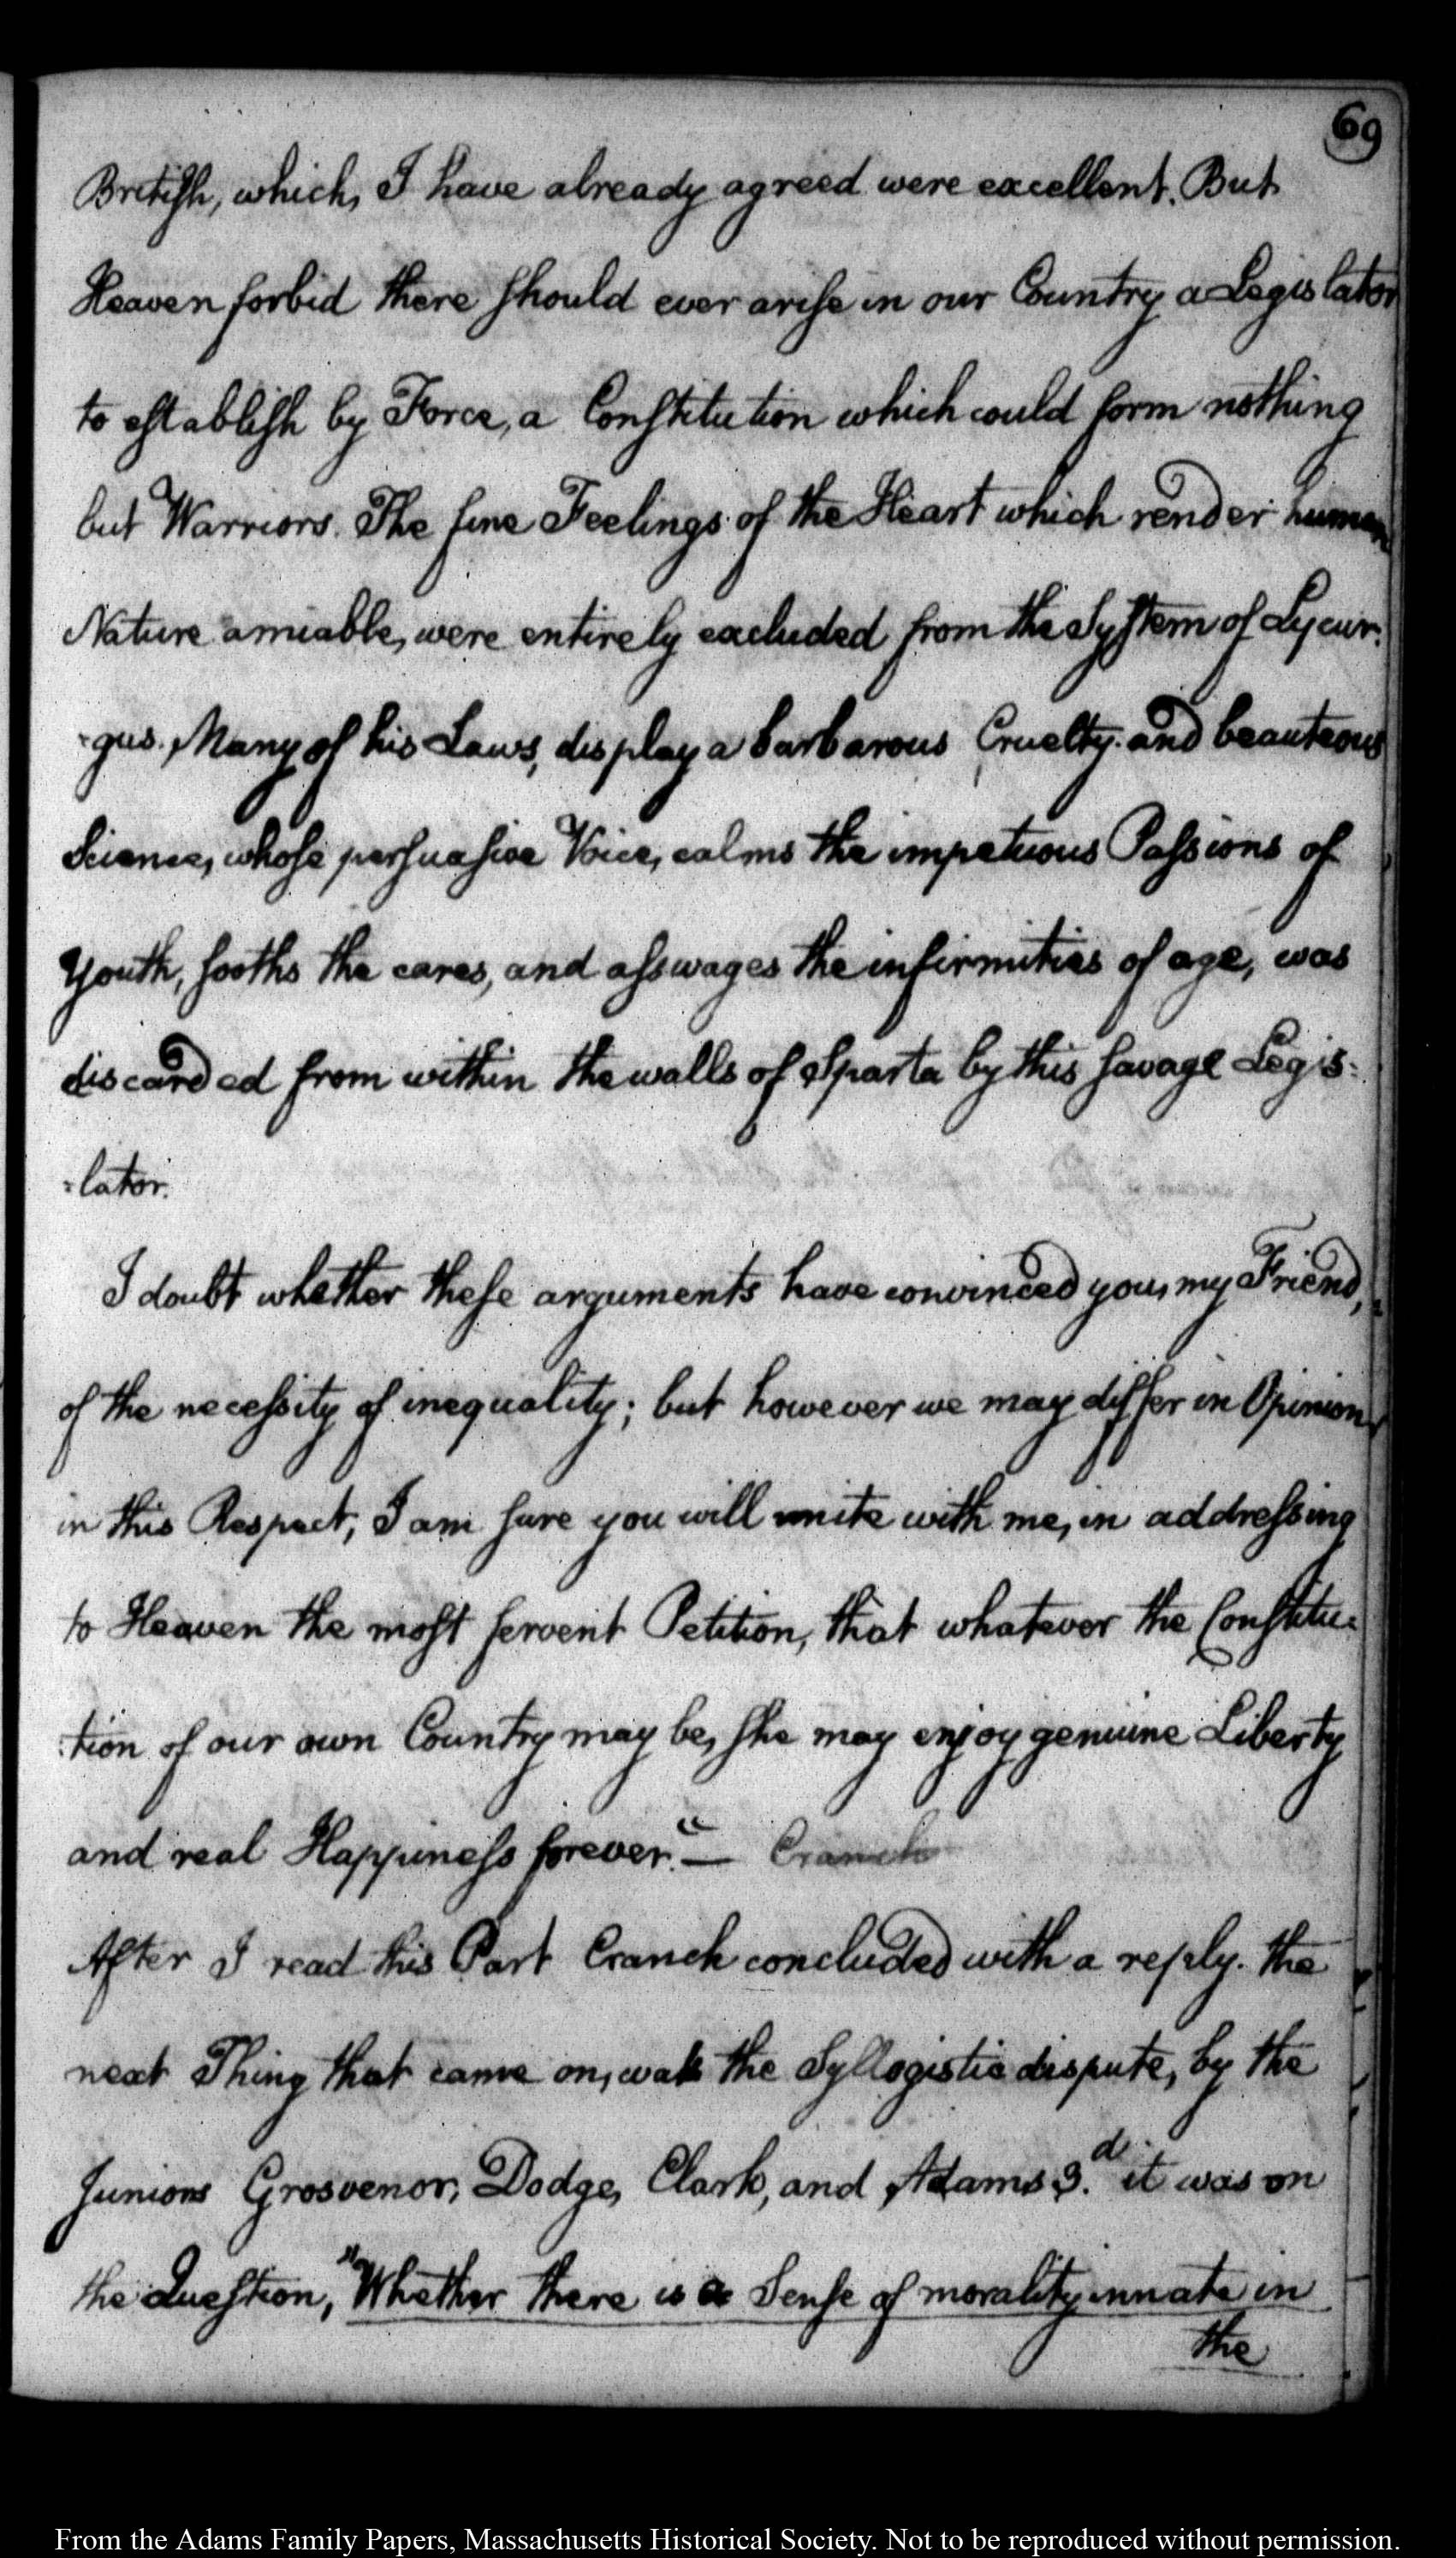 69
British, which, I have already agreed were excellent. But
Heaven forbid there should ever arise in our Country a Legislator
to establish by Force, a Constitution which could form nothing
but Warriors. The fine Feelings of the Heart which render human
Nature amiable, were entirely excluded from the System of Lycur-
-gus. Many of his Laws, display a barbarous Cruelty. and beauteous
Science, whose persuasive Voice, calms the impetuous Passions of
Youth, sooths the cares, and asswages the infirmities of age, was
discarded from within the walls of Sparta by this savage Legis-
-lator.
I doubt whether these arguments have convinced you, my Friend,
of the necessity of inequality; but however we may differ in Opinion,
in this Respect, I am sure you will unite with me, in addressing
to Heaven the most fervent Petition, that whatever the Constitu-
-tion of our own Country may be, she may enjoy genuine Liberty
and real Happiness forever." — Cranch
After I read this Part Cranch concluded with a reply. the
next Thing that came on, was the Syllogistic dispute, by the
Juniors Grosvenor, Dodge, Clark, and Adams 3.d it was on
the Question, "Whether there is a Sense of morality innate in
the
From the Adams Family Papers, Massachusetts Historical Society. Not to be reproduced without permission.